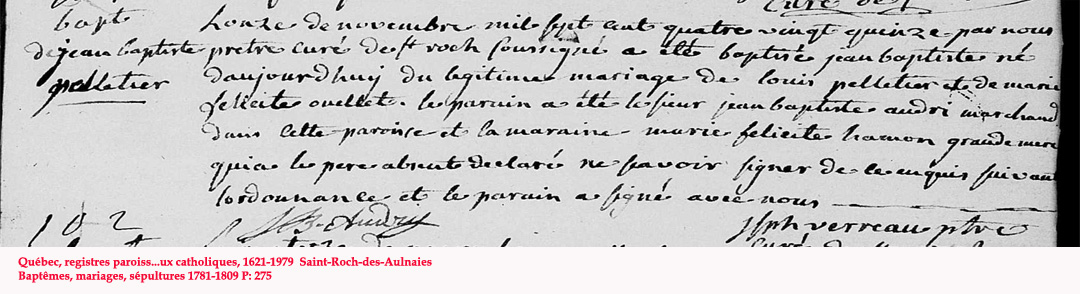 Curé de
bapt
de jean baptiste
pelletier
Lonze de novembre mil sept cent quatre vingt quinze par nous
pretre curé de st roch soussigné a été baptisé jean baptiste né
daujourdhuy du legitime mariage de louis pelletier et de marie
felicité ouellet. le parain a été le sieur jean baptiste audri marchand
dans cette paroisse et la maraine marie felicité hamon grande mere
qui a le pere absent declaré ne savoir signer de ce enquis suivant
lordonnance et le parain a signé avec nous
JB. Audry
Jsph verreau ptre
102
Québec, registres paroiss...ux catholiques, 1621-1979 Saint-Roch-des-Aulnaies
Baptêmes, mariages, sépultures 1781-1809 P: 275